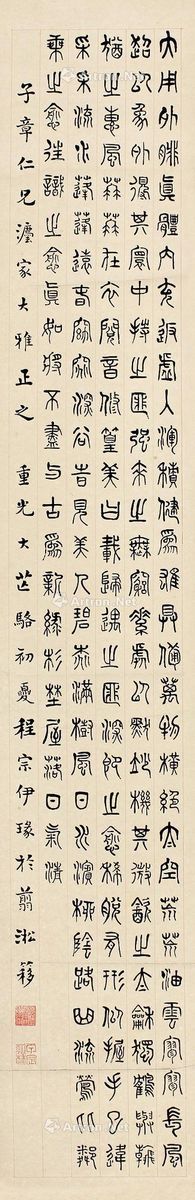 大用外腓真體內充返虛入渾積健為雄具備萬物橫絕太空荒荒油雲寥寥長風
超以象外得其寰中持之匪強來之無窮素處以默妙機其微飲之太龢獨鶴與飛
猶之惠風荏苒在衣閱音修篁美曰載歸遇之匪深即之愈稀脫有形似握手已違
采采流水蓬蓬遠春窈窕深谷時見美人碧桃滿樹風日水濱柳陰路曲流鶯比鄰
乘之愈往識之愈真如將不盡與古為新綠杉埜屋落日氣清
子章仁兄灋家大雅正之 重光大芒駱初夏程宗伊瑑於翦淞簃